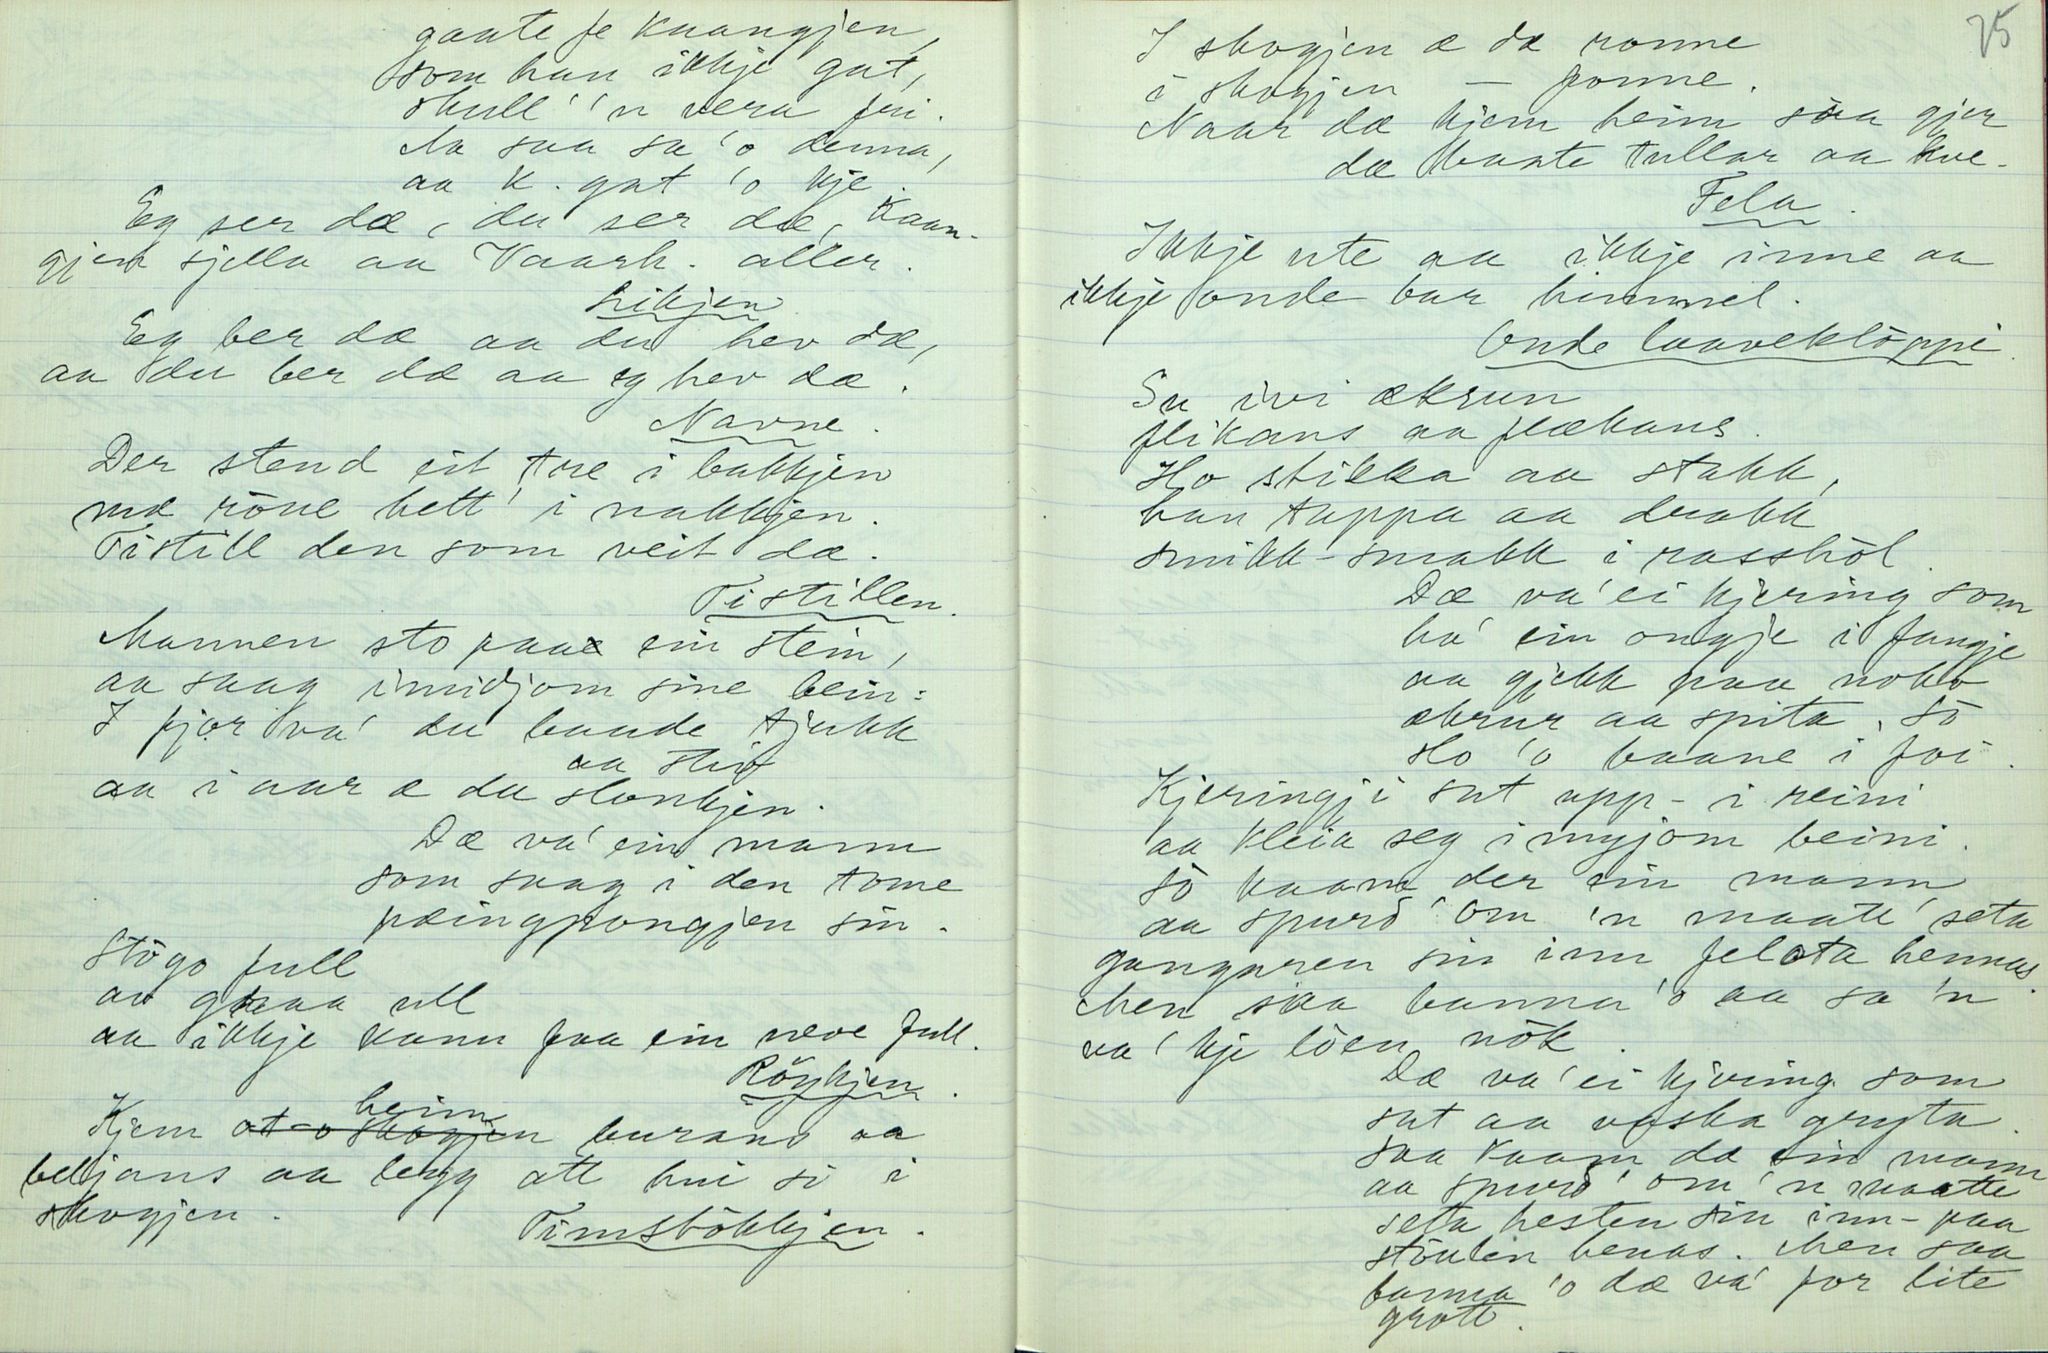 gaate fe Kaangjen,
som han ikkje gat,
skull' 'n vera fri.
Aa saa sa 'o denna,
aa K. gat 'o kje.
Eg ser dæ, du ser dæ, Kaan-
gjen sjella aa Vaarh. aller.
Likjen
Eg ber dæ aa du hev dæ,
aa du ber dæ aa eg hev dæ.
Navne.
Der stend eit tre i bakkjen
mæ röue hett' i nakkjen.
Tistill den som veit dæ.
Tistillen.
Mannen sto paa ein stein,
aa saag imidjom sine bein:
I fjor va' du baade tjukk
aa stiv
aa i aar æ du slonkjen.
Dæ va' ein mann
som saag i den tome
pæingpongjen sin.
Stögo full
av graa ull
aa ikkje kann faa ein neve full.
Röykjen.
heim
Kjem at o skogjen burans aa
beljans aa legg att hui si i
skogjen.
Timstökkjen.
75
I skogjen æ dæ ronne
i skogjen — fonne.
Naar dæ kjem heim saa gjer
dæ baate tullar aa kve.
Fela.
Ikkje ute aa ikkje inne aa
ikkje onde bar himmel.
Onde laaveklöppi.
Su ivi ækrun
flikans aa flækans.
Ho stikka aa stakk,
han tappa aa drakk
smikk-smakk i rasshöl.
Dæ va' ei kjering som
ha' ein ongje i fangje
aa gjekk paa noko
ækrur aa spita. Sö
slo 'o baane i foi.
Kjeringji sat upp-i reini
aa kleia seg imyjom beini.
Sö kaam der ein mann
aa spurd' om 'n maatt' seta
gangaren sin inn felata hennas.
Men saa banna 'o aa sa 'n
va' kje löen nök.
Dæ va' ei kjering som
sat aa vaska gryta.
Saa kaam dæ ein mann
aa spurd' om 'n maatte
seta hesten sin inn-paa
stöulen henas. Men saa
banna 'o dæ va' for lite
grott.